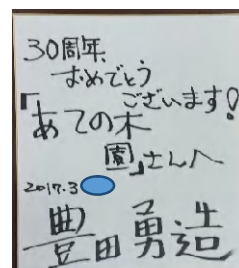 30周年
おめでとう
ございます!
「あての木
園」さんへ
2017.3
豊田勇造